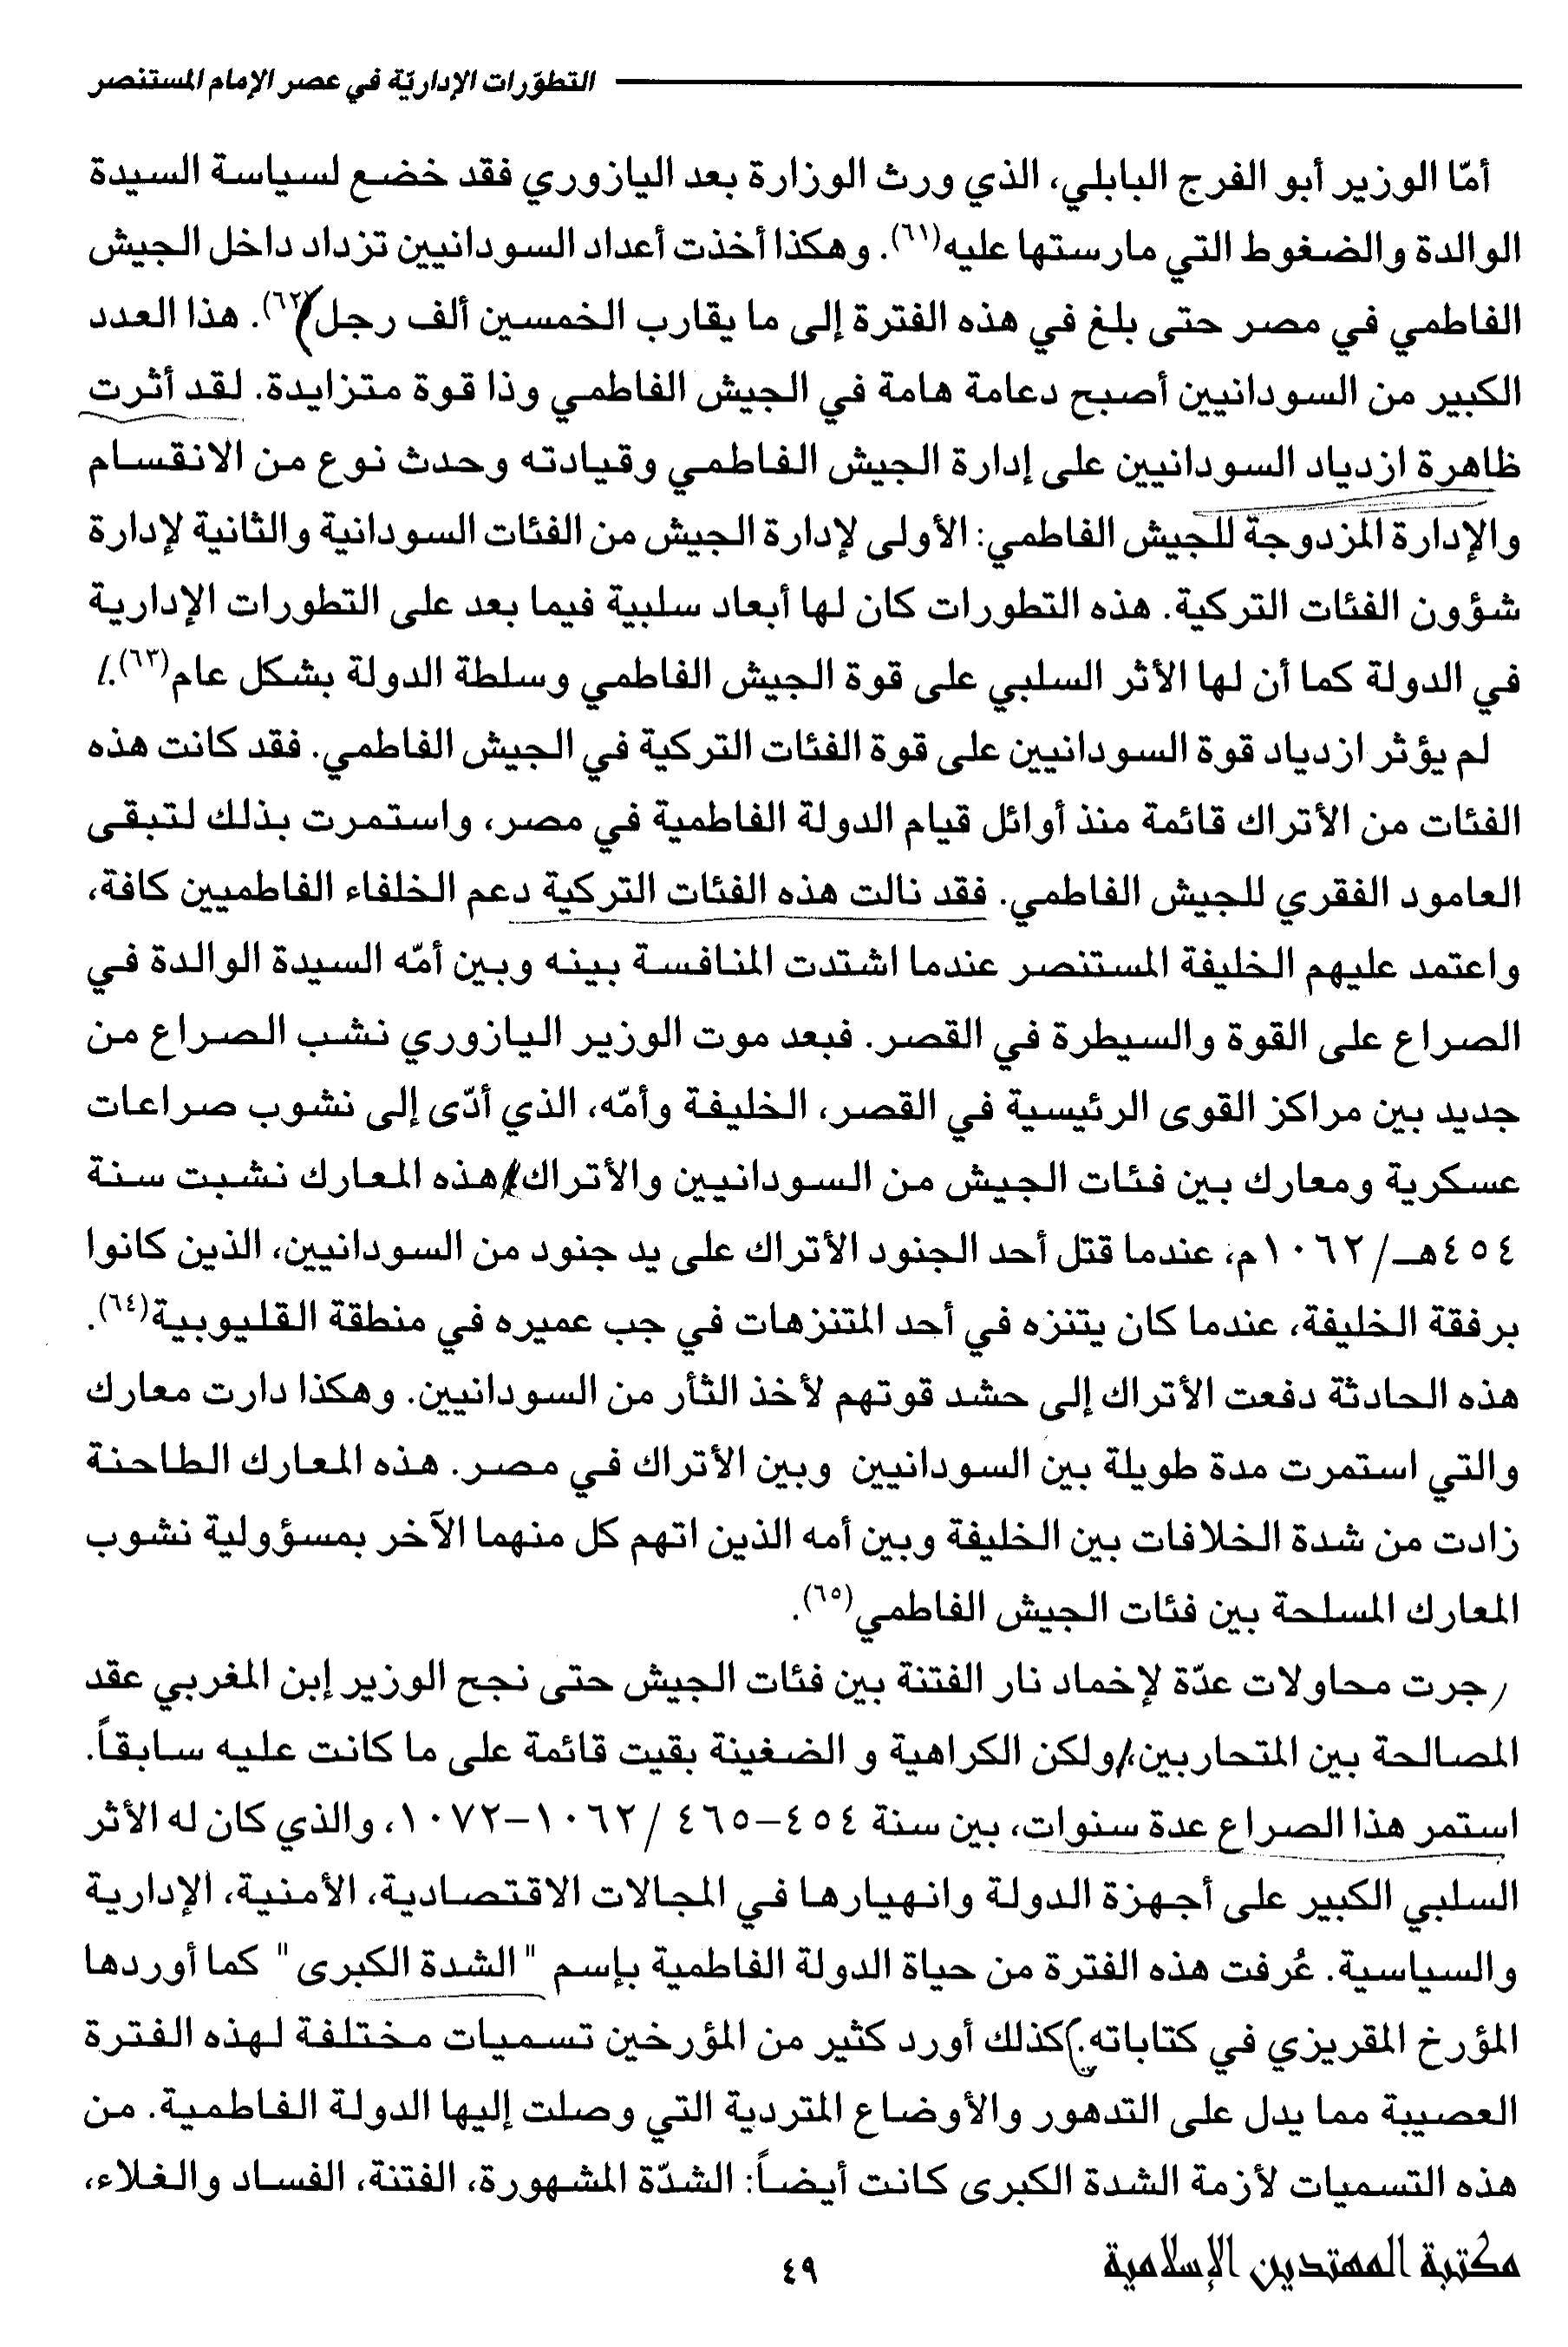 التطوّرات الإداريّة في عصر الإمام المستنصر
أمّا الوزير أبو الفرج البابلي، الذي ورث الوزارة بعد اليازوري فقد خضع لسياسة السيدة
الوالدة والضغوط التي مارستها عليه(٦١). وهكذا أخذت أعداد السودانيين تزداد داخل الجيش
الفاطمي في مصر حتى بلغ في هذه الفترة إلى ما يقارب الخمسين ألف رجل(٦٢). هذا العدد
الكبير من السودانيين أصبح دعامة هامة في الجيش الفاطمي وذا قوة متزايدة. لقد أثرت
ظاهرة ازدياد السودانيين على إدارة الجيش الفاطمي وقيادته وحدث نوع من الانقسام
والإدارة المزدوجة للجيش الفاطمي: الأولى لإدارة الجيش من الفئات السودانية والثانية لإدارة
شؤون الفئات التركية. هذه التطورات كان لها أبعاد سلبية فيما بعد على التطورات الإدارية
في الدولة كما أن لها الأثر السلبي على قوة الجيش الفاطمي وسلطة الدولة بشكل عام(٦٣).
لم يؤثر ازدياد قوة السودانيين على قوة الفئات التركية في الجيش الفاطمي. فقد كانت هذه
الفئات من الأتراك قائمة منذ أوائل قيام الدولة الفاطمية في مصر، واستمرت بذلك لتبقى
العامود الفقري للجيش الفاطمي. فقد نالت هذه الفئات التركية دعم الخلفاء الفاطميين كافة،
واعتمد عليهم الخليفة المستنصر عندما اشتدت المنافسة بينه وبين أمّه السيدة الوالدة في
الصراع على القوة والسيطرة في القصر. فبعد موت الوزير اليازوري نشب الصراع من
جديد بين مراكز القوى الرئيسية في القصر، الخليفة وأمّه، الذي أدّى إلى نشوب صراعات
عسكرية ومعارك بين فئات الجيش من السودانيين والأتراك هذه المعارك نشبت سنة
٤٥٤هـ/ ١٠٦٢م، عندما قتل أحد الجنود الأتراك على يد جنود من السودانيين، الذين كانوا
برفقة الخليفة، عندما كان يتنزه في أحد المتنزهات في جب عميره في منطقة القليوبية(٦٤).
هذه الحادثة دفعت الأتراك إلى حشد قوتهم لأخذ الثأر من السودانيين. وهكذا دارت معارك
والتي استمرت مدة طويلة بين السودانيين وبين الأتراك في مصر. هذه المعارك الطاحنة
زادت من شدة الخلافات بين الخليفة وبين أمه الذين اتهم كل منهما الآخر بمسؤولية نشوب
المعارك المسلحة بين فئات الجيش الفاطمي(٦٥).
جرت محاولات عدّة لإخماد نار الفتنة بين فئات الجيش حتى نجح الوزير إبن المغربي عقد
المصالحة بين المتحاربين، ولكن الكراهية و الضغينة بقيت قائمة على ما كانت عليه سابقاً.
استمر هذا الصراع عدة سنوات، بين سنة ٤٥٤-٤٦٥ / ١٠٦٢-١٠٧٢، والذي كان له الأثر
السلبي الكبير على أجهزة الدولة وانهيارها في المجالات الاقتصادية، الأمنية، الإدارية
والسياسية. عُرفت هذه الفترة من حياة الدولة الفاطمية بإسم "الشدة الكبرى" كما أوردها
المؤرخ المقريزي في كتاباته. كذلك أورد كثير من المؤرخين تسميات مختلفة لهذه الفترة
العصيبة مما يدل على التدهور والأوضاع المتردية التي وصلت إليها الدولة الفاطمية. من
هذه التسميات لأزمة الشدة الكبرى كانت أيضاً: الشدّة المشهورة، الفتنة، الفساد والغلاء،
مكتبة المهتدين الإسلامية
٤٩